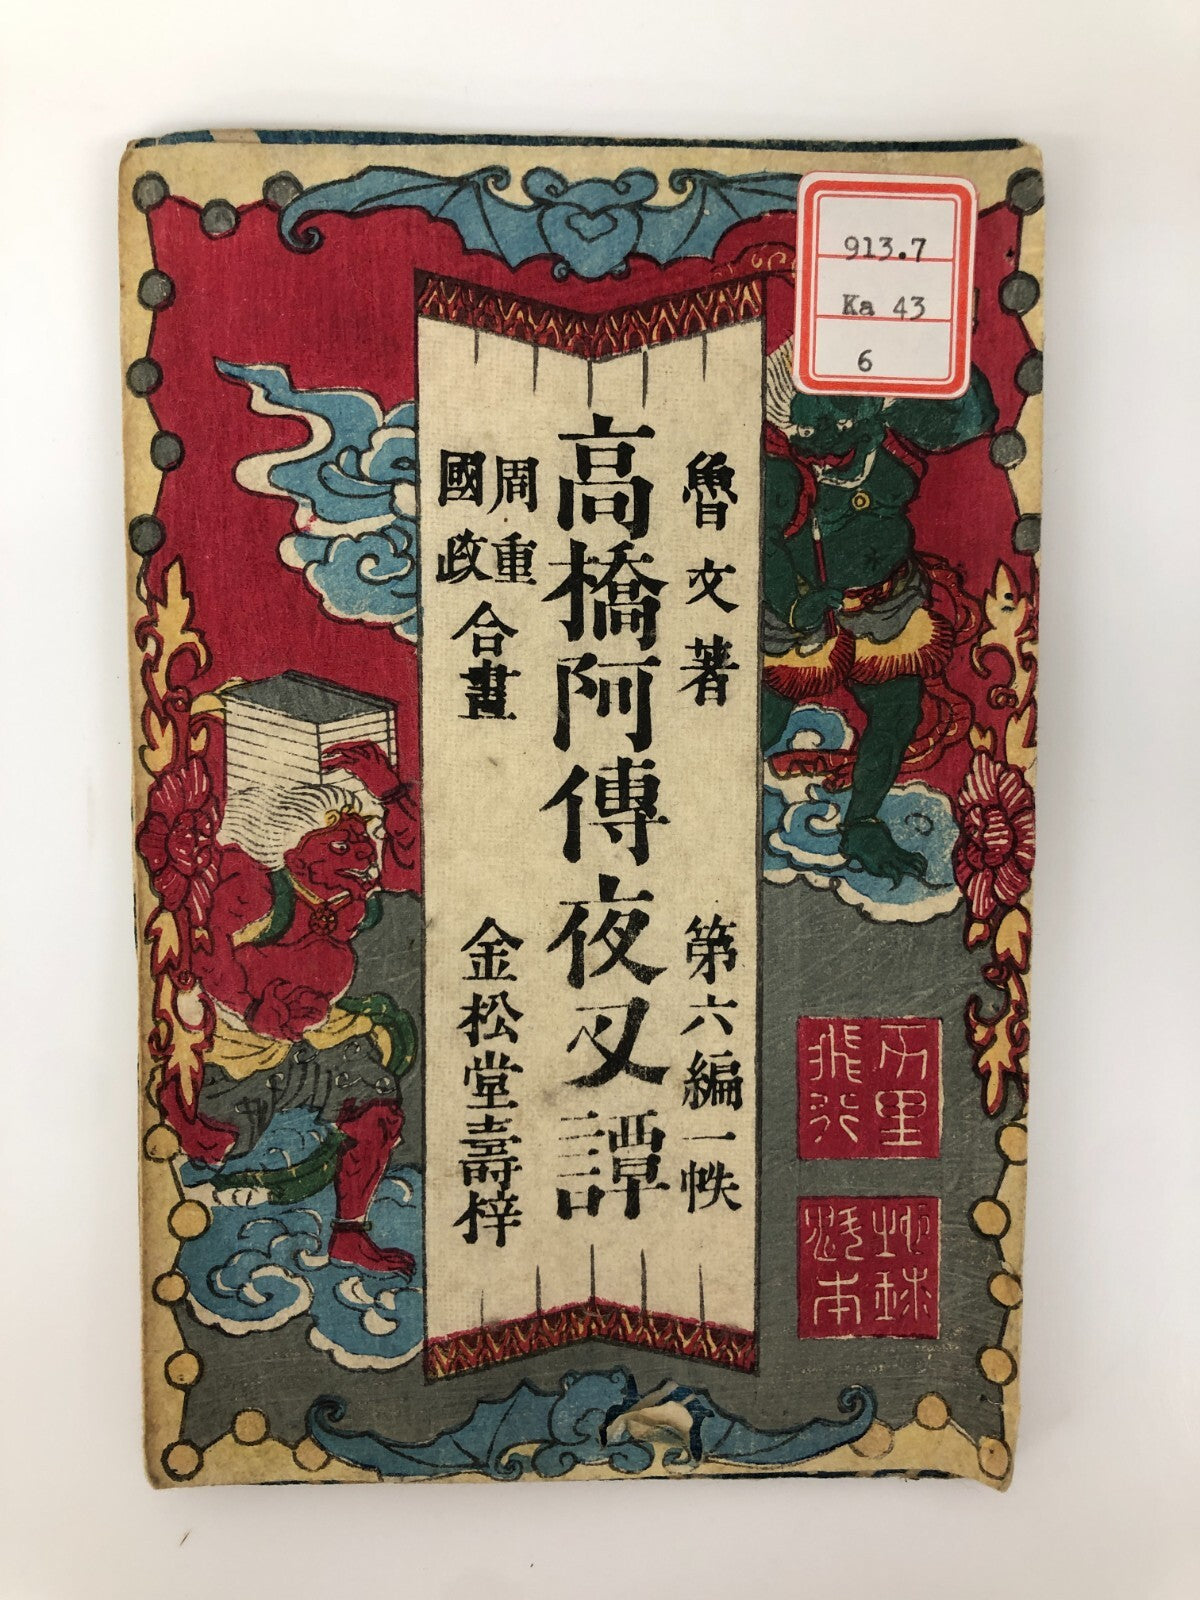 913.7
Ka 43
6
魯文著 第六編一帙
高橋阿傳夜叉譚
周重
國政
合畫
金松堂壽梓
千里
飛行
地球